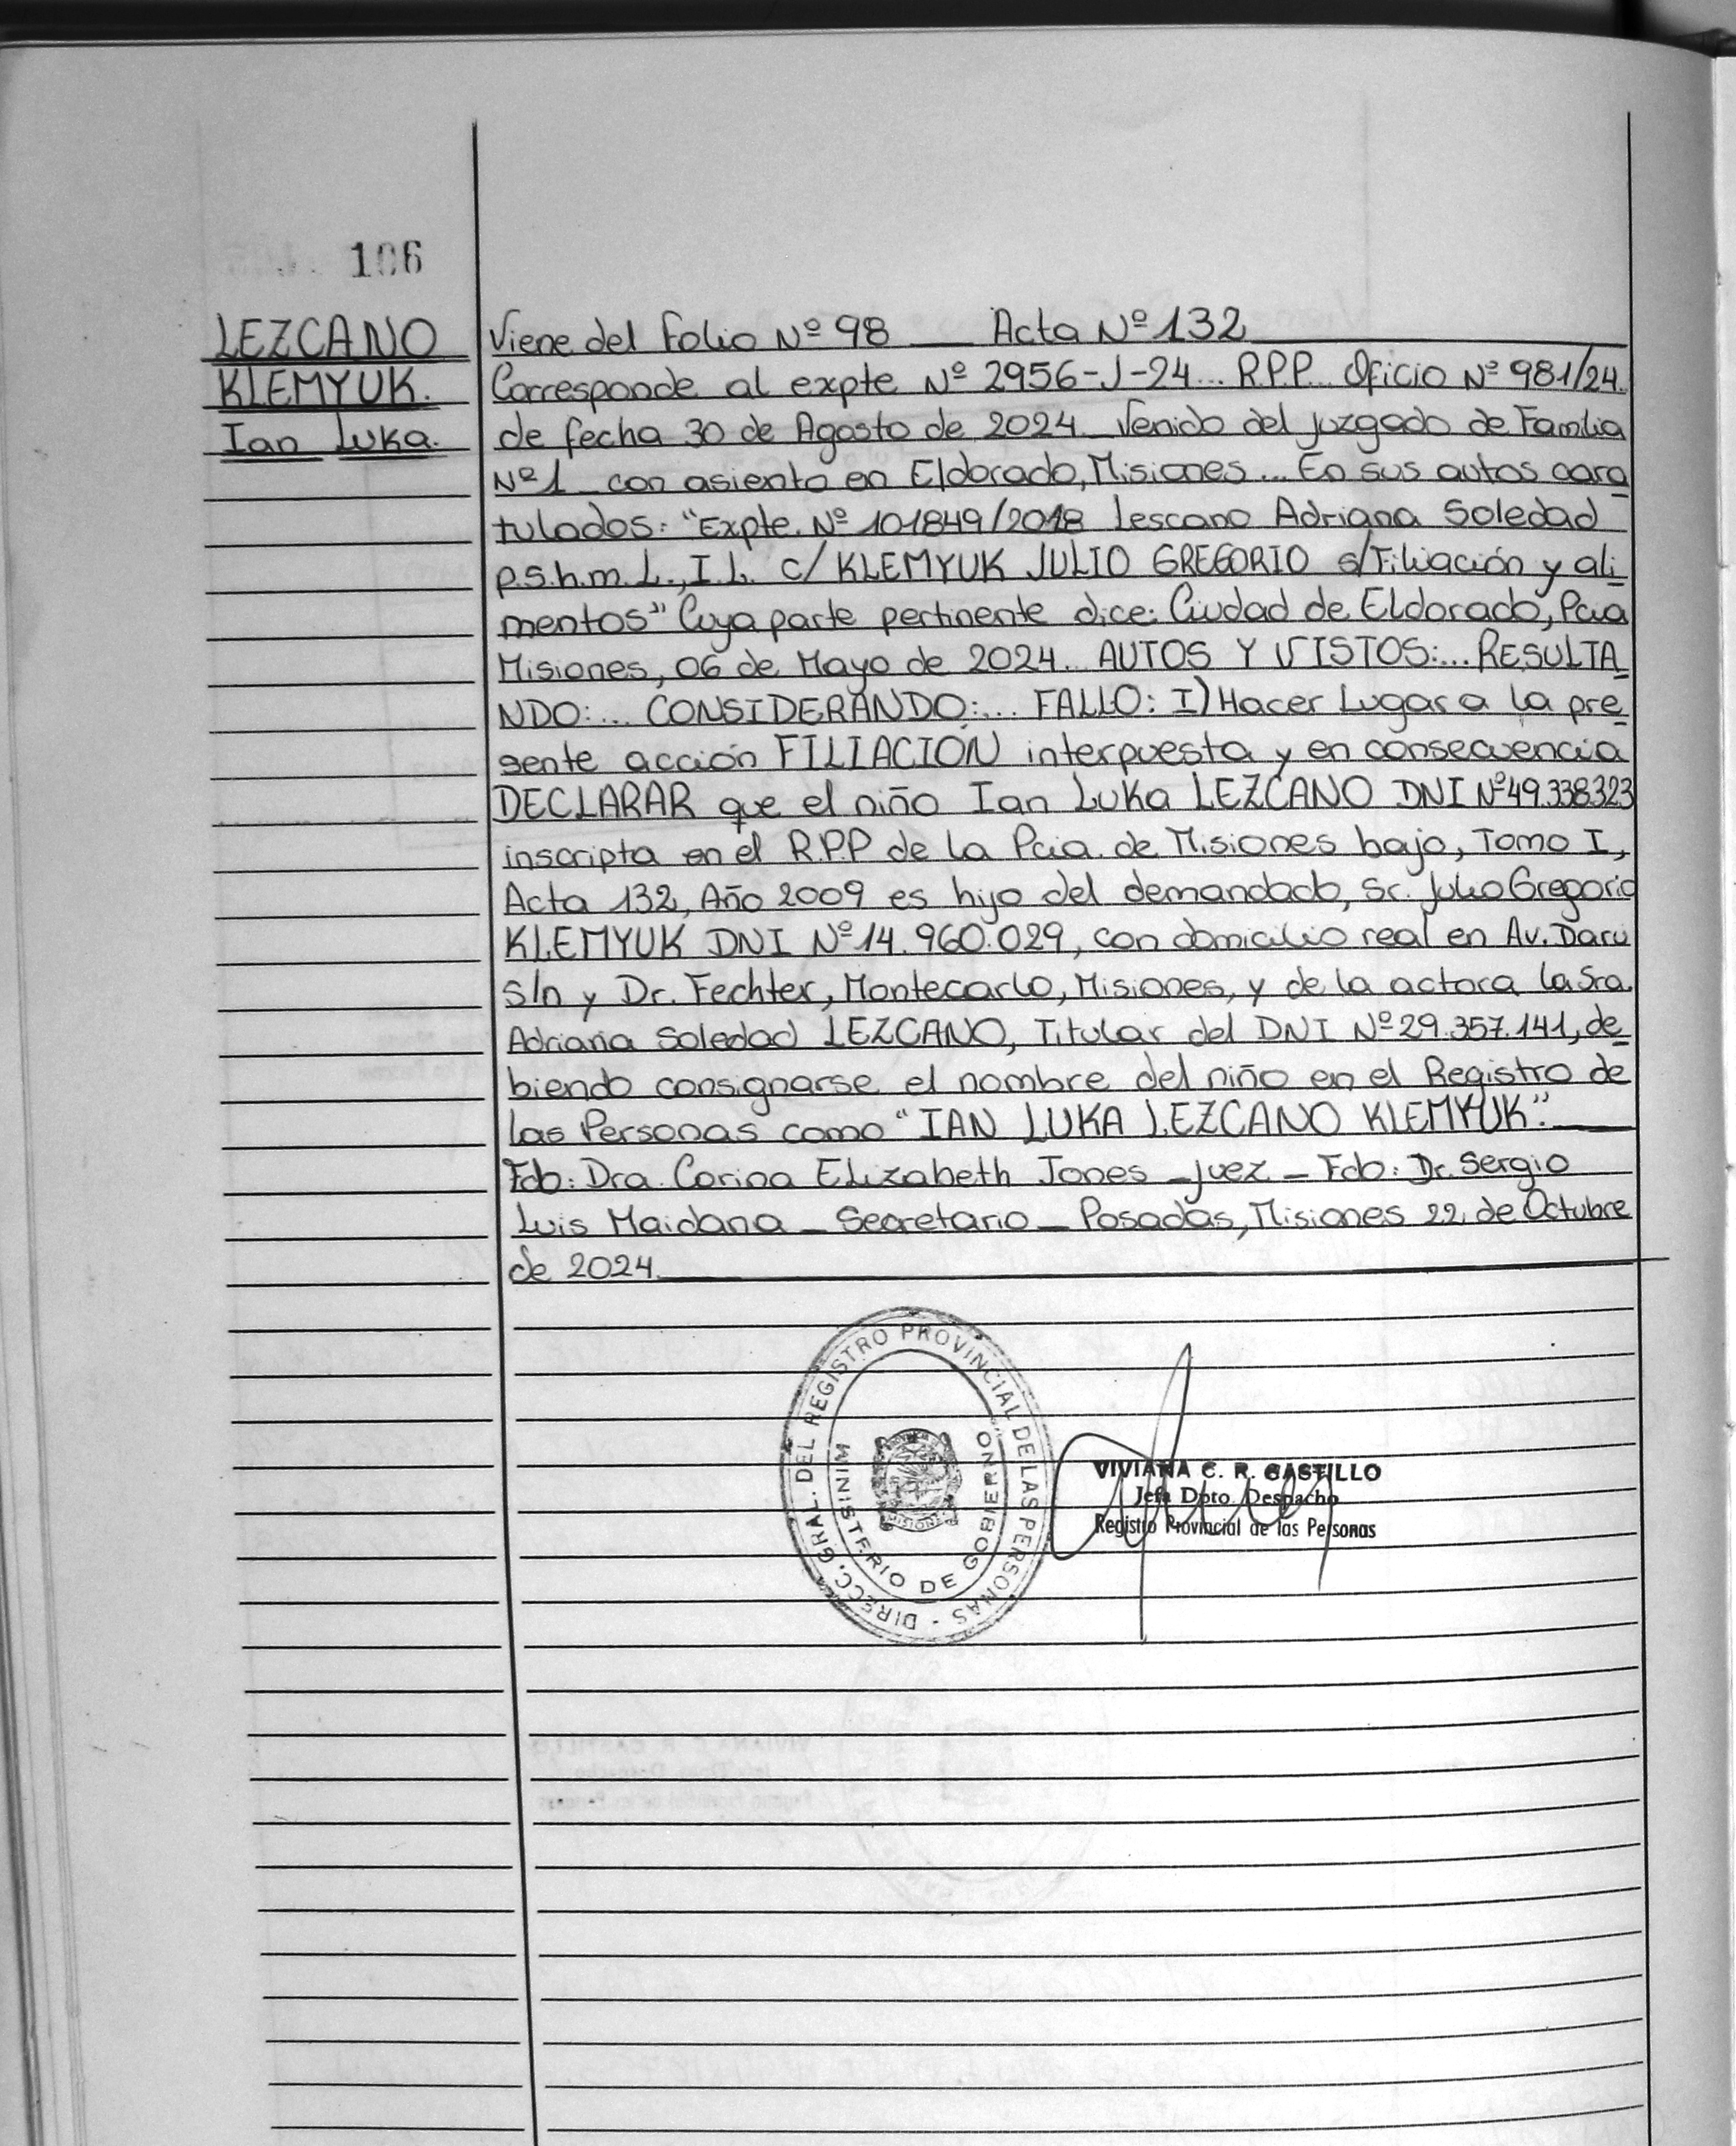 106
LEZCANO
KLEMYUK.
Ian Luka.
Viene del Folio Nº 98 __ Acta Nº 132
Corresponde al expte Nº 2956-J-24... R.P.P... Oficio Nº 981/24.
de fecha 30 de Agosto de 2024. Venido del juzgado de Familia
Nº 1 con asiento en Eldorado, Misiones... En sus autos cara
tulados: "Expte. Nº 101849/2018 Lescano Adriana Soledad
p.s.h.m. L., I.L. c/ KLEMYUK JULIO GREGORIO s/Filiación y ali
mentos" Cuya parte pertinente dice: Ciudad de Eldorado, Pcia
Misiones, 06 de Mayo de 2024. AUTOS Y VISTOS:... RESULTA
NDO:... CONSIDERANDO:... FALLO: I) Hacer Lugar a la pre
sente acción FILIACIÓN interpuesta y en consecuencia
DECLARAR que el niño Ian Luka LEZCANO DNI Nº 49.338.323
inscripta en el R.P.P de la Pcia. de Misiones bajo, Tomo I,
Acta 132, Año 2009 es hijo del demandado, Sr. Julio Gregorio
KLEMYUK DNI Nº 14.960.029, con domicilio real en Av. Daru
s/n y Dr. Fechter, Montecarlo, Misiones, y de la actora la Sra.
Adriana Soledad LEZCANO, Titular del DNI Nº 29.357.141, de
biendo consignarse el nombre del niño en el Registro de
las Personas como "IAN LUKA LEZCANO KLEMYUK".
Fdo: Dra. Corina Elizabeth Jones - Juez - Fdo: Dr. Sergio
Luis Maidana - Secretario - Posadas, Misiones 22 de Octubre
de 2024.
DIRECC. GRAL. DEL REGISTRO PROVINCIAL DE LAS PERSONAS -
MINISTERIO DE GOBIERNO
MISIONES
VIVIANA C. R. CASTILLO
Jefa Dpto. Despacho
Registro Provincial de las Personas